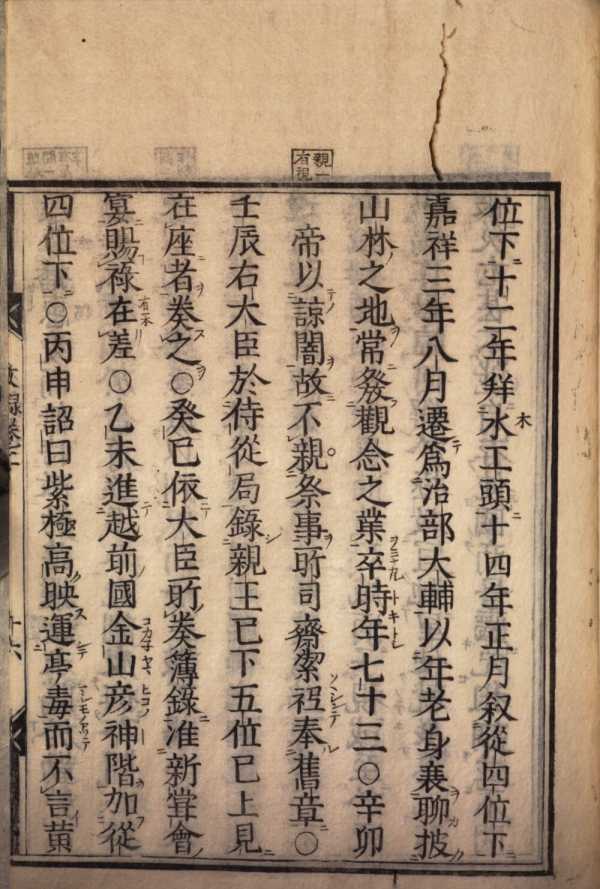 親一
有視
位下十二年拜水工頭十四年正月叙從四位下
嘉祥三年八月遷爲治部大輔以年老身衰聊披
山林之地常發觀念之業卒時年七十三○辛卯
帝以諒闇故不親祭事所司齋潔祗奉舊章○
壬辰右大臣於侍從局錄親王已下五位已上見
在座者奏之○癸巳依大臣所奏簿錄准新嘗會
宴賜祿在差○乙未進越前國金山彦神階加從
四位下○丙申詔曰紫極高映運亭毒而不言黄